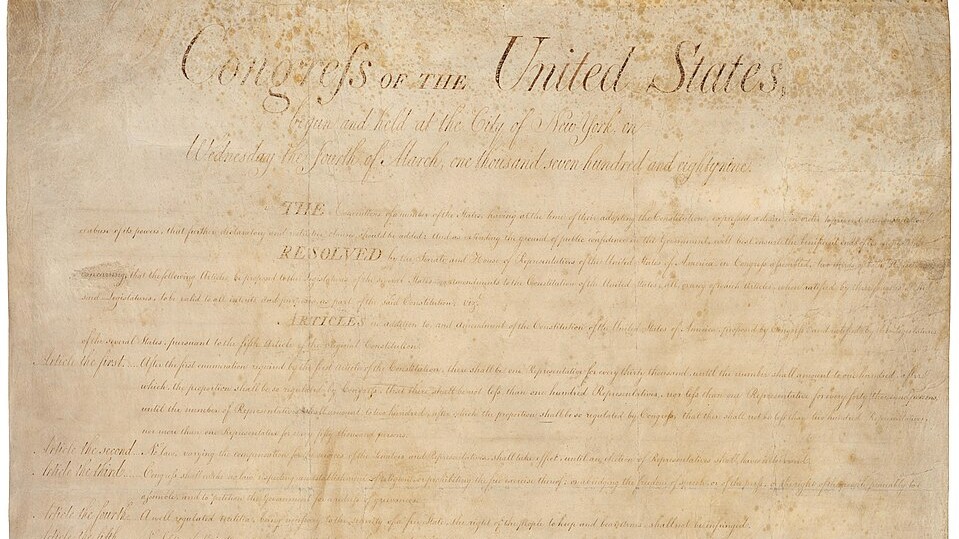 Congreſs OF THE United States,
begun and held at the City of New-York, on
Wednesday the fourth of March, one thousand seven hundred and eighty nine.
THE Conventions of a number of the States, having at the time of their adopting the Constitution, expressed a desire, in order to prevent
or abuse of its powers, that further declaratory and restrictive clauses should be added: And as extending the ground of public confidence in the Government, will best ensure the beneficent ends of
RESOLVED by the Senate and House of Representatives of the United States of America, in Congress assembled, two thirds of
concurring, that the following Articles be proposed to the Legislatures of the several States, as amendments to the Constitution of the United States, all, or any of which Articles, when ratified by three fourths of
said Legislatures, to be valid to all intents and purposes, as part of the said Constitution. viz.
ARTICLES in addition to, and Amendment of the Constitution of the United States of America, proposed by Congress, and ratified by the Legislatures
of the several States, pursuant to the fifth Article of the original Constitution.
Article the first.... After the first enumeration required by the first Article of the Constitution, there shall be one Representative for every thirty thousand, until the number shall amount to one hundred, after
which, the proportion shall be so regulated by Congress, that there shall be not less than one hundred Representatives, nor less than one Representative for every forty thousand persons,
until the number of Representatives shall amount to two hundred, after which the proportion shall be so regulated by Congress, that there shall not be less than two hundred Representatives,
nor more than one Representative for every fifty thousand persons.
Article the second... No law, varying the compensation for the services of the Senators and Representatives, shall take effect, until an election of Representatives shall have intervened.
Article the third..... Congress shall make no law respecting an establishment of religion, or prohibiting the free exercise thereof; or abridging the freedom of speech, or of the press; or the right of the people peaceably to
assemble, and to petition the Government for a redress of grievances.
Article the fourth.. A well regulated Militia, being necessary to the security of a free State, the right of the people to keep and bear Arms, shall not be infringed.
Article the fifth